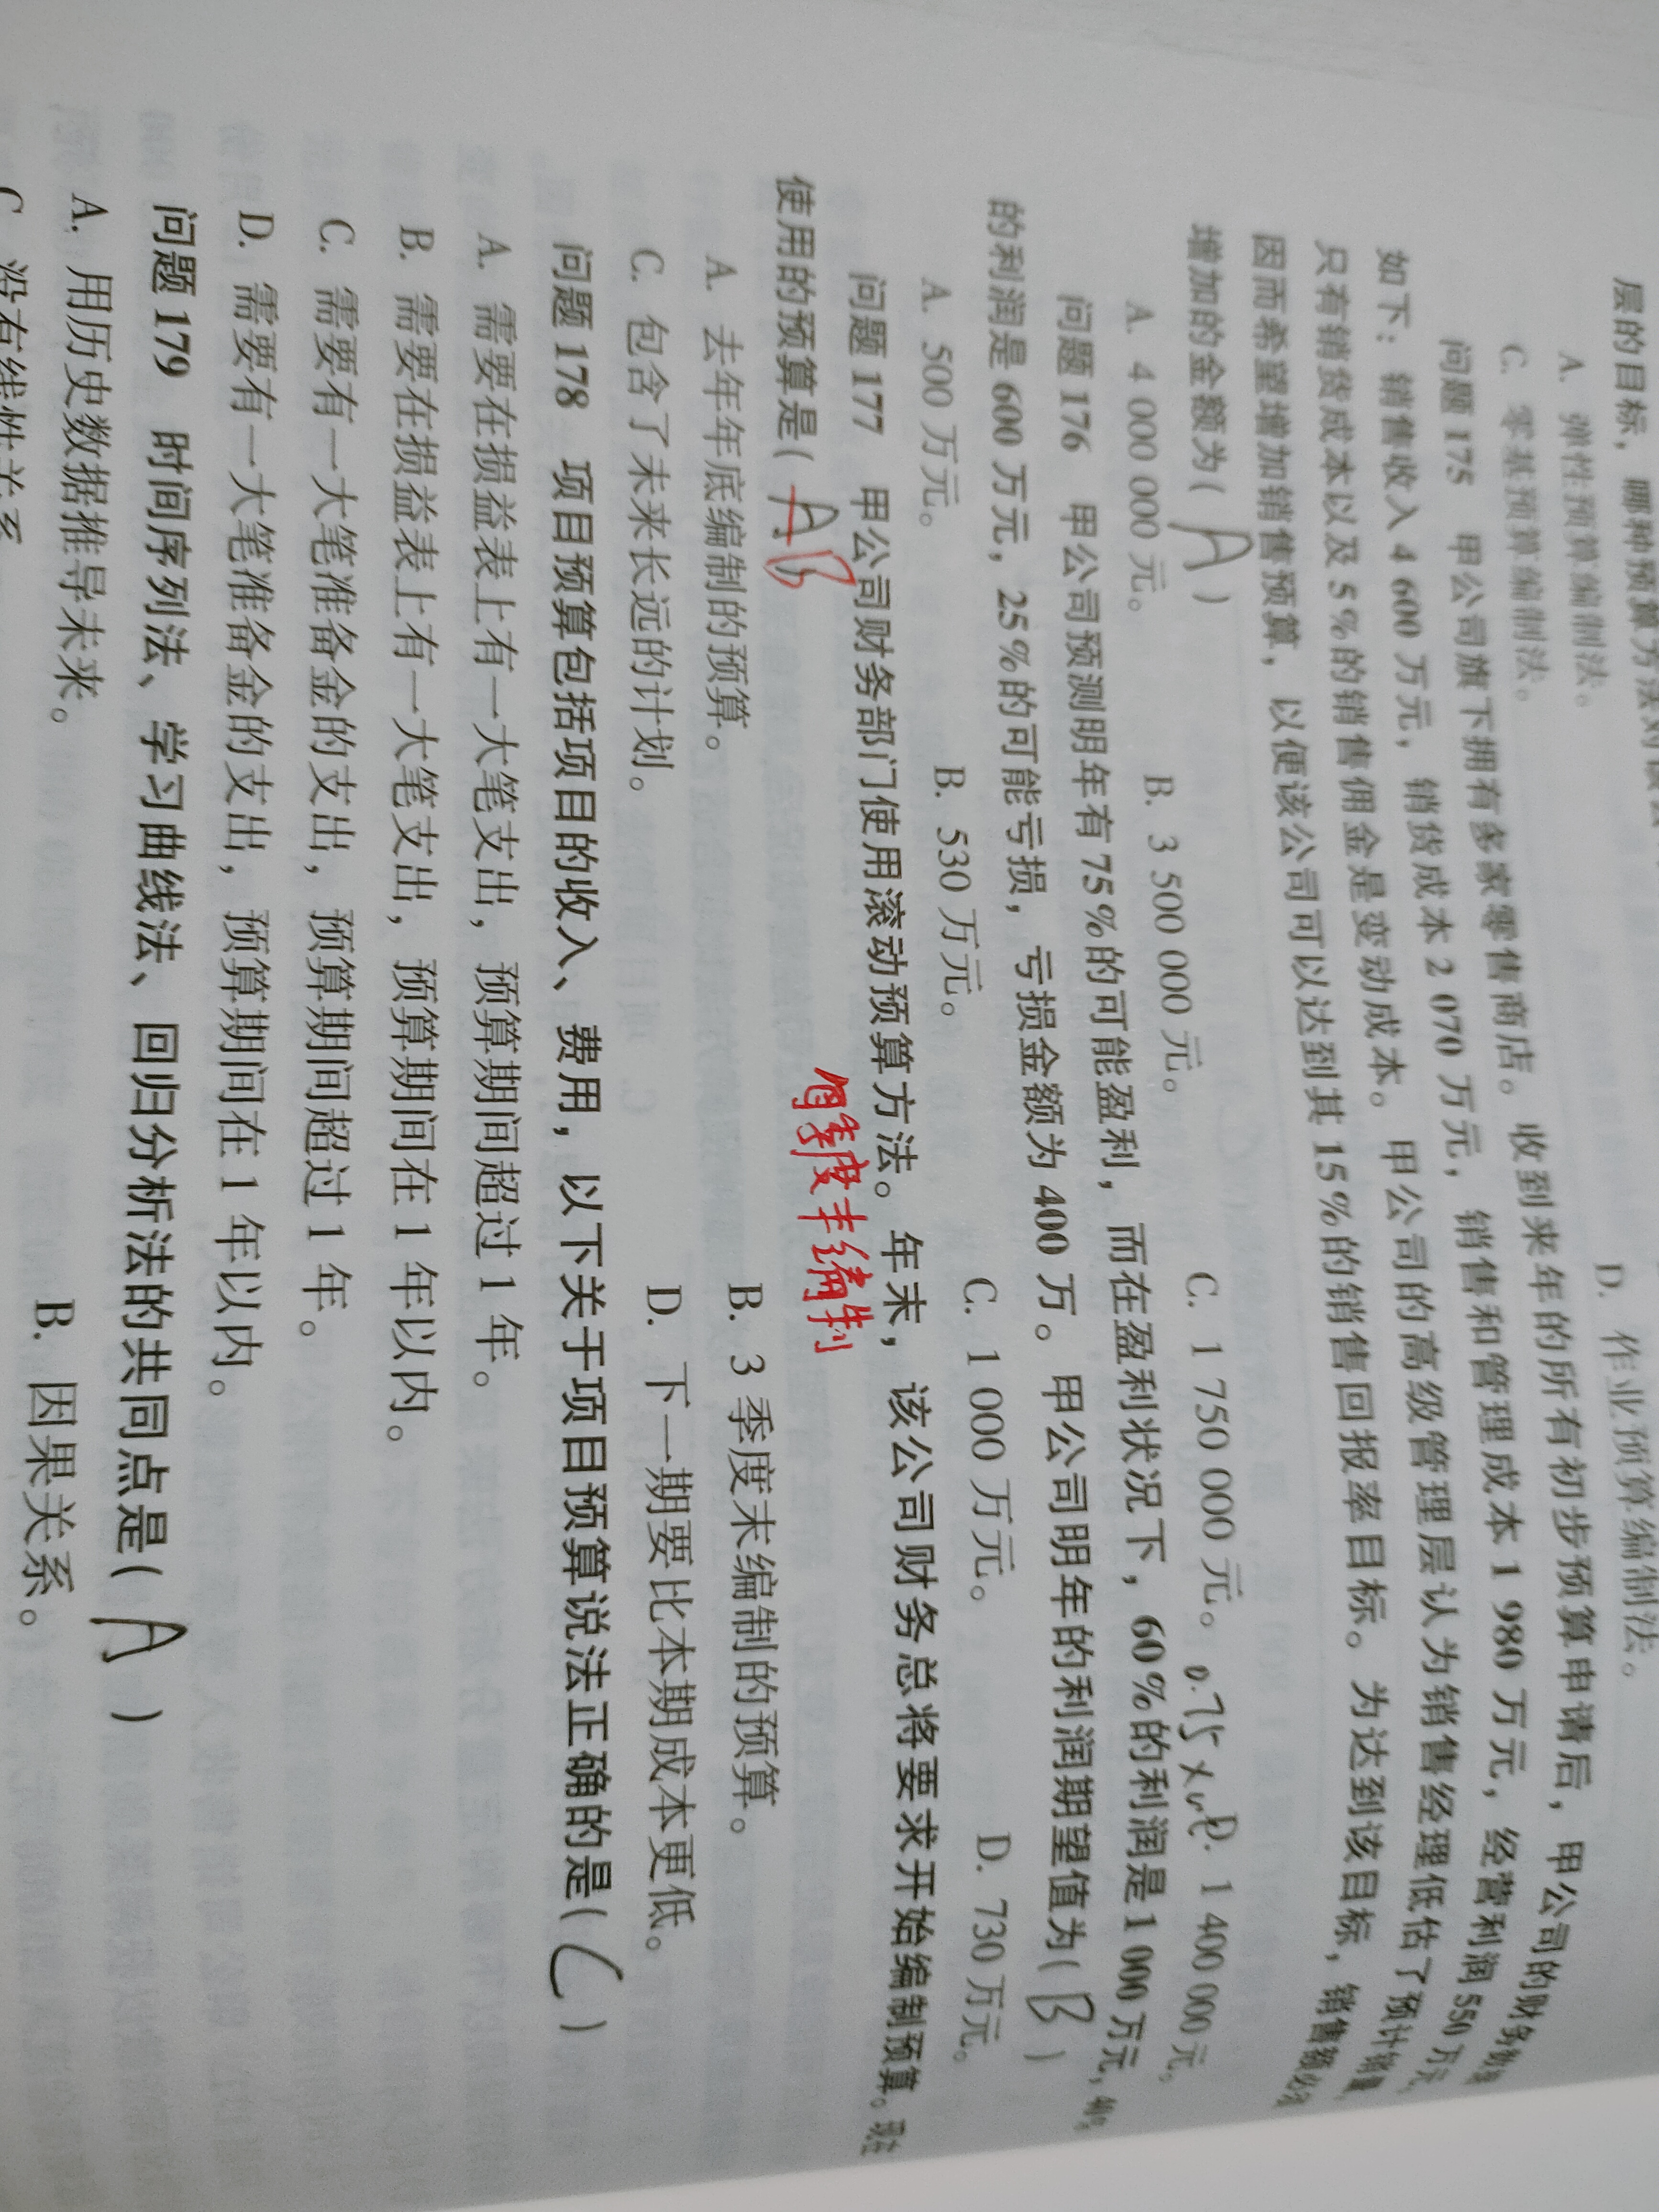 层的目标，哪种预算方法对该公
A. 弹性预算编制法。
C. 零基预算编制法。 D. 作业预算编制法。
问题 175 甲公司旗下拥有多家零售商店。收到来年的所有初步预算申请后，甲公司的财务
如下：销售收入 4 600 万元，销货成本 2 070 万元，销售和管理成本 1 980 万元，经营利润 550 万元
只有销货成本以及 5%的销售佣金是变动成本。甲公司的高级管理层认为销售经理低估了预计销量
因而希望增加销售预算，以便该公司可以达到其 15%的销售回报率目标。为达到该目标，销售额必须
增加的金额为( A )
A. 4 000 000 元。 B. 3 500 000 元。 C. 1 750 000 元。 0.75 × D. 1 400 000 元。
问题 176 甲公司预测明年有 75%的可能盈利，而在盈利状况下，60%的利润是 1 000 万元，40%
的利润是 600 万元，25%的可能亏损，亏损金额为 400 万。甲公司明年的利润期望值为( B )
A. 500 万元。 B. 530 万元。 C. 1 000 万元。 D. 730 万元。
问题 177 甲公司财务部门使用滚动预算方法。年末，该公司财务总将要求开始编制预算。现在
使用的预算是( A B
每季度末编制
A. 去年年底编制的预算。 B. 3 季度末编制的预算。
C. 包含了未来长远的计划。 D. 下一期要比本期成本更低。
问题 178 项目预算包括项目的收入、费用，以下关于项目预算说法正确的是( C )
A. 需要在损益表上有一大笔支出，预算期间超过 1 年。
B. 需要在损益表上有一大笔支出，预算期间在 1 年以内。
C. 需要有一大笔准备金的支出，预算期间超过 1 年。
D. 需要有一大笔准备金的支出，预算期间在 1 年以内。
问题 179 时间序列法、学习曲线法、回归分析法的共同点是( A )
A. 用历史数据推导未来。 B. 因果关系。
C 没有线性关系